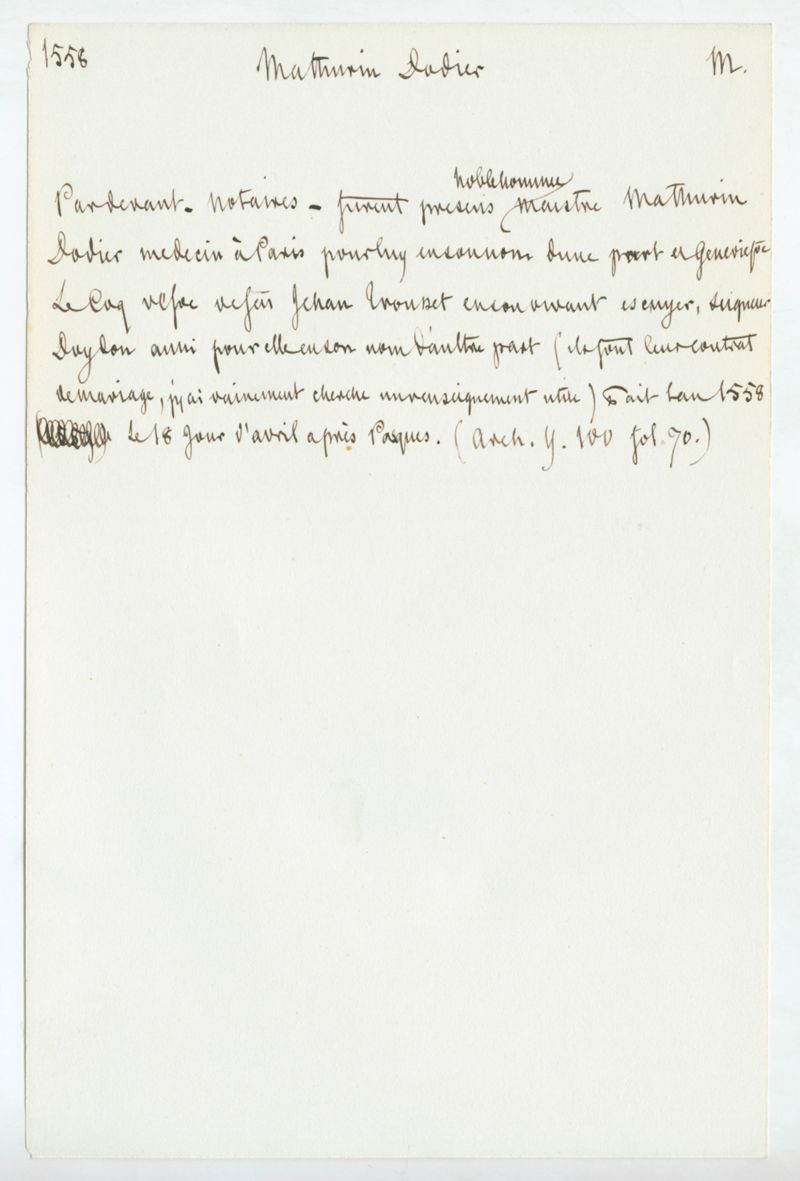 1558 Mathurin Dodier M.
noble homme
Pardevant - notaires - furent presens maistre Mathurin
Dodier medecin à Paris pour luy en son nom dune part et Geneviefve
Le Coq vefve de feu Jehan Trousset en son vivant escuyer, seigneur
Doyson aussi pour elle en son nom d'aultre part (ils font leur contrat
de mariage, j'y ai vainement cherche un renseignement utile) Fait lan 1558
le 18 jour d'avril après Pasques. (Arch. Y. 100 fol. 70.)